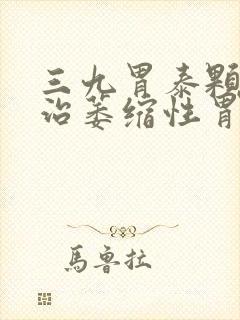 三九胃泰颗
治萎缩性胃
馬鲁拉